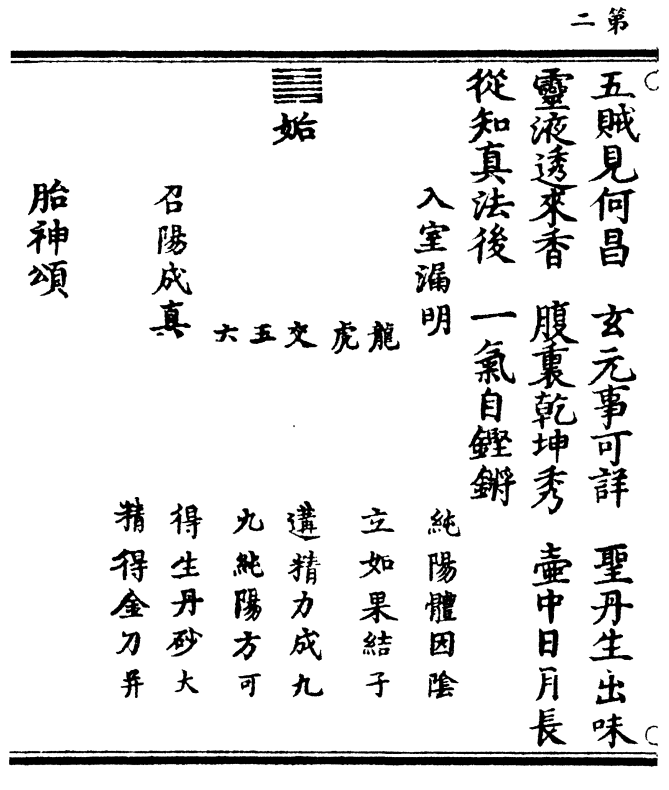 第二
五賊見何昌 玄元事可詳 聖丹生出味
靈液透來香 腹裏乾坤秀 壺中日月長
從知真法後 一氣自鏗鏘
姤
入室漏明
龍虎交五六
召陽成真
純陽體因陰
立如果結子
遘精力成九
九純陽方可
得生丹砂大
精得金刀昇
胎神頌